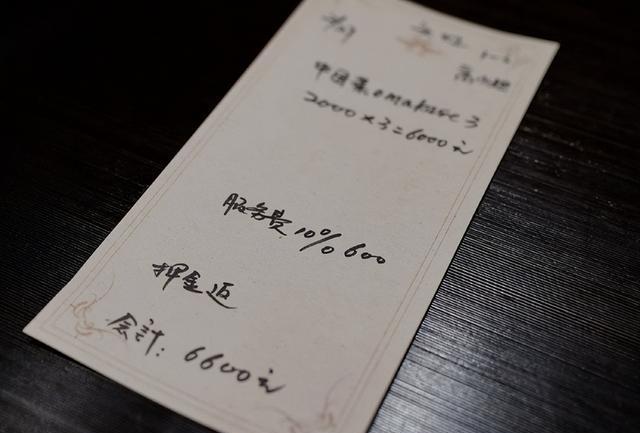 中国菜omakase 3
2000×3=6000元
服务费 10% 600
押金 返
会計: 6600元